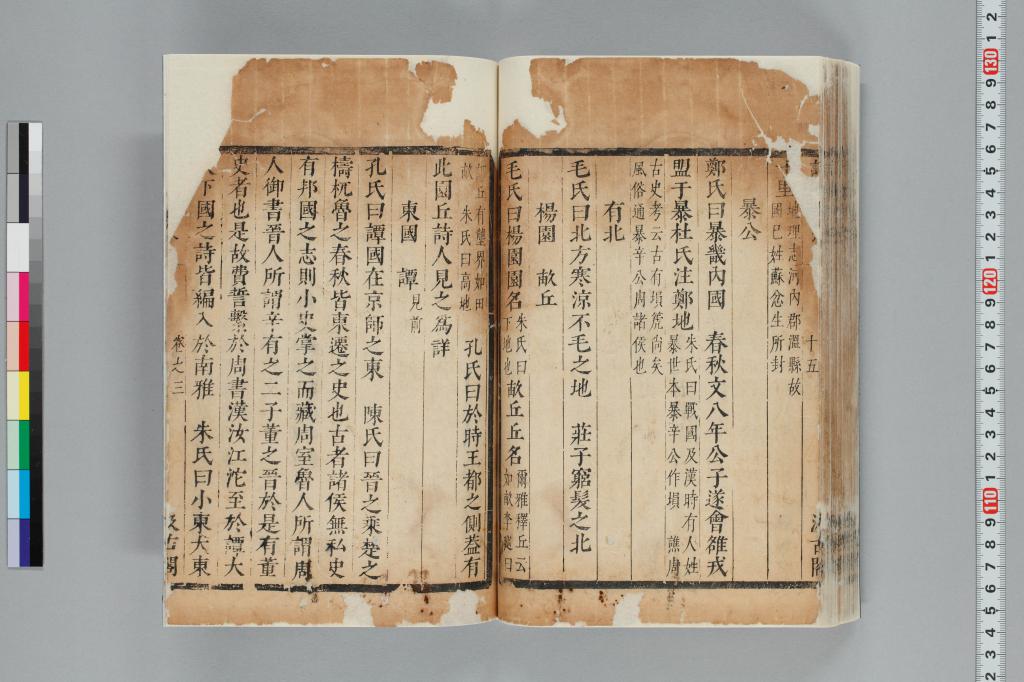 十五 汲古閣
里 地理志河內郡溫縣故
國巳姓蘇忿生所封
暴公
鄭氏曰暴畿內國 春秋文八年公子遂會雒戎
盟于暴杜氏注鄭地 朱氏曰戰國及漢時有人姓
暴世本暴辛公作塤 譙周
古史考云古有塤箎尚矣
風俗通暴辛公周諸侯也
有北
毛氏曰北方寒涼不毛之地 莊子窮髮之北
楊園 畝丘
毛氏曰楊園園名 朱氏曰
下地也 畝丘丘名 爾雅釋丘云
如畝李巡曰
丘有壟界如田
畝 朱氏曰高地 孔氏曰於時王都之側葢有
此園丘詩人見之爲詳
東國 譚 見前
孔氏曰譚國在京師之東 陳氏曰晉之乘楚之
檮杌魯之春秋皆東遷之史也古者諸侯無私史
有邦國之志則小史掌之而藏周室魯人所謂周
人御書晉人所謂辛有之二子董之晉於是有董
史者也是故費誓繫於周書漢汝江沱至於譚大
下國之詩皆編入於南雅 朱氏曰小東大東
卷之三 汲古閣